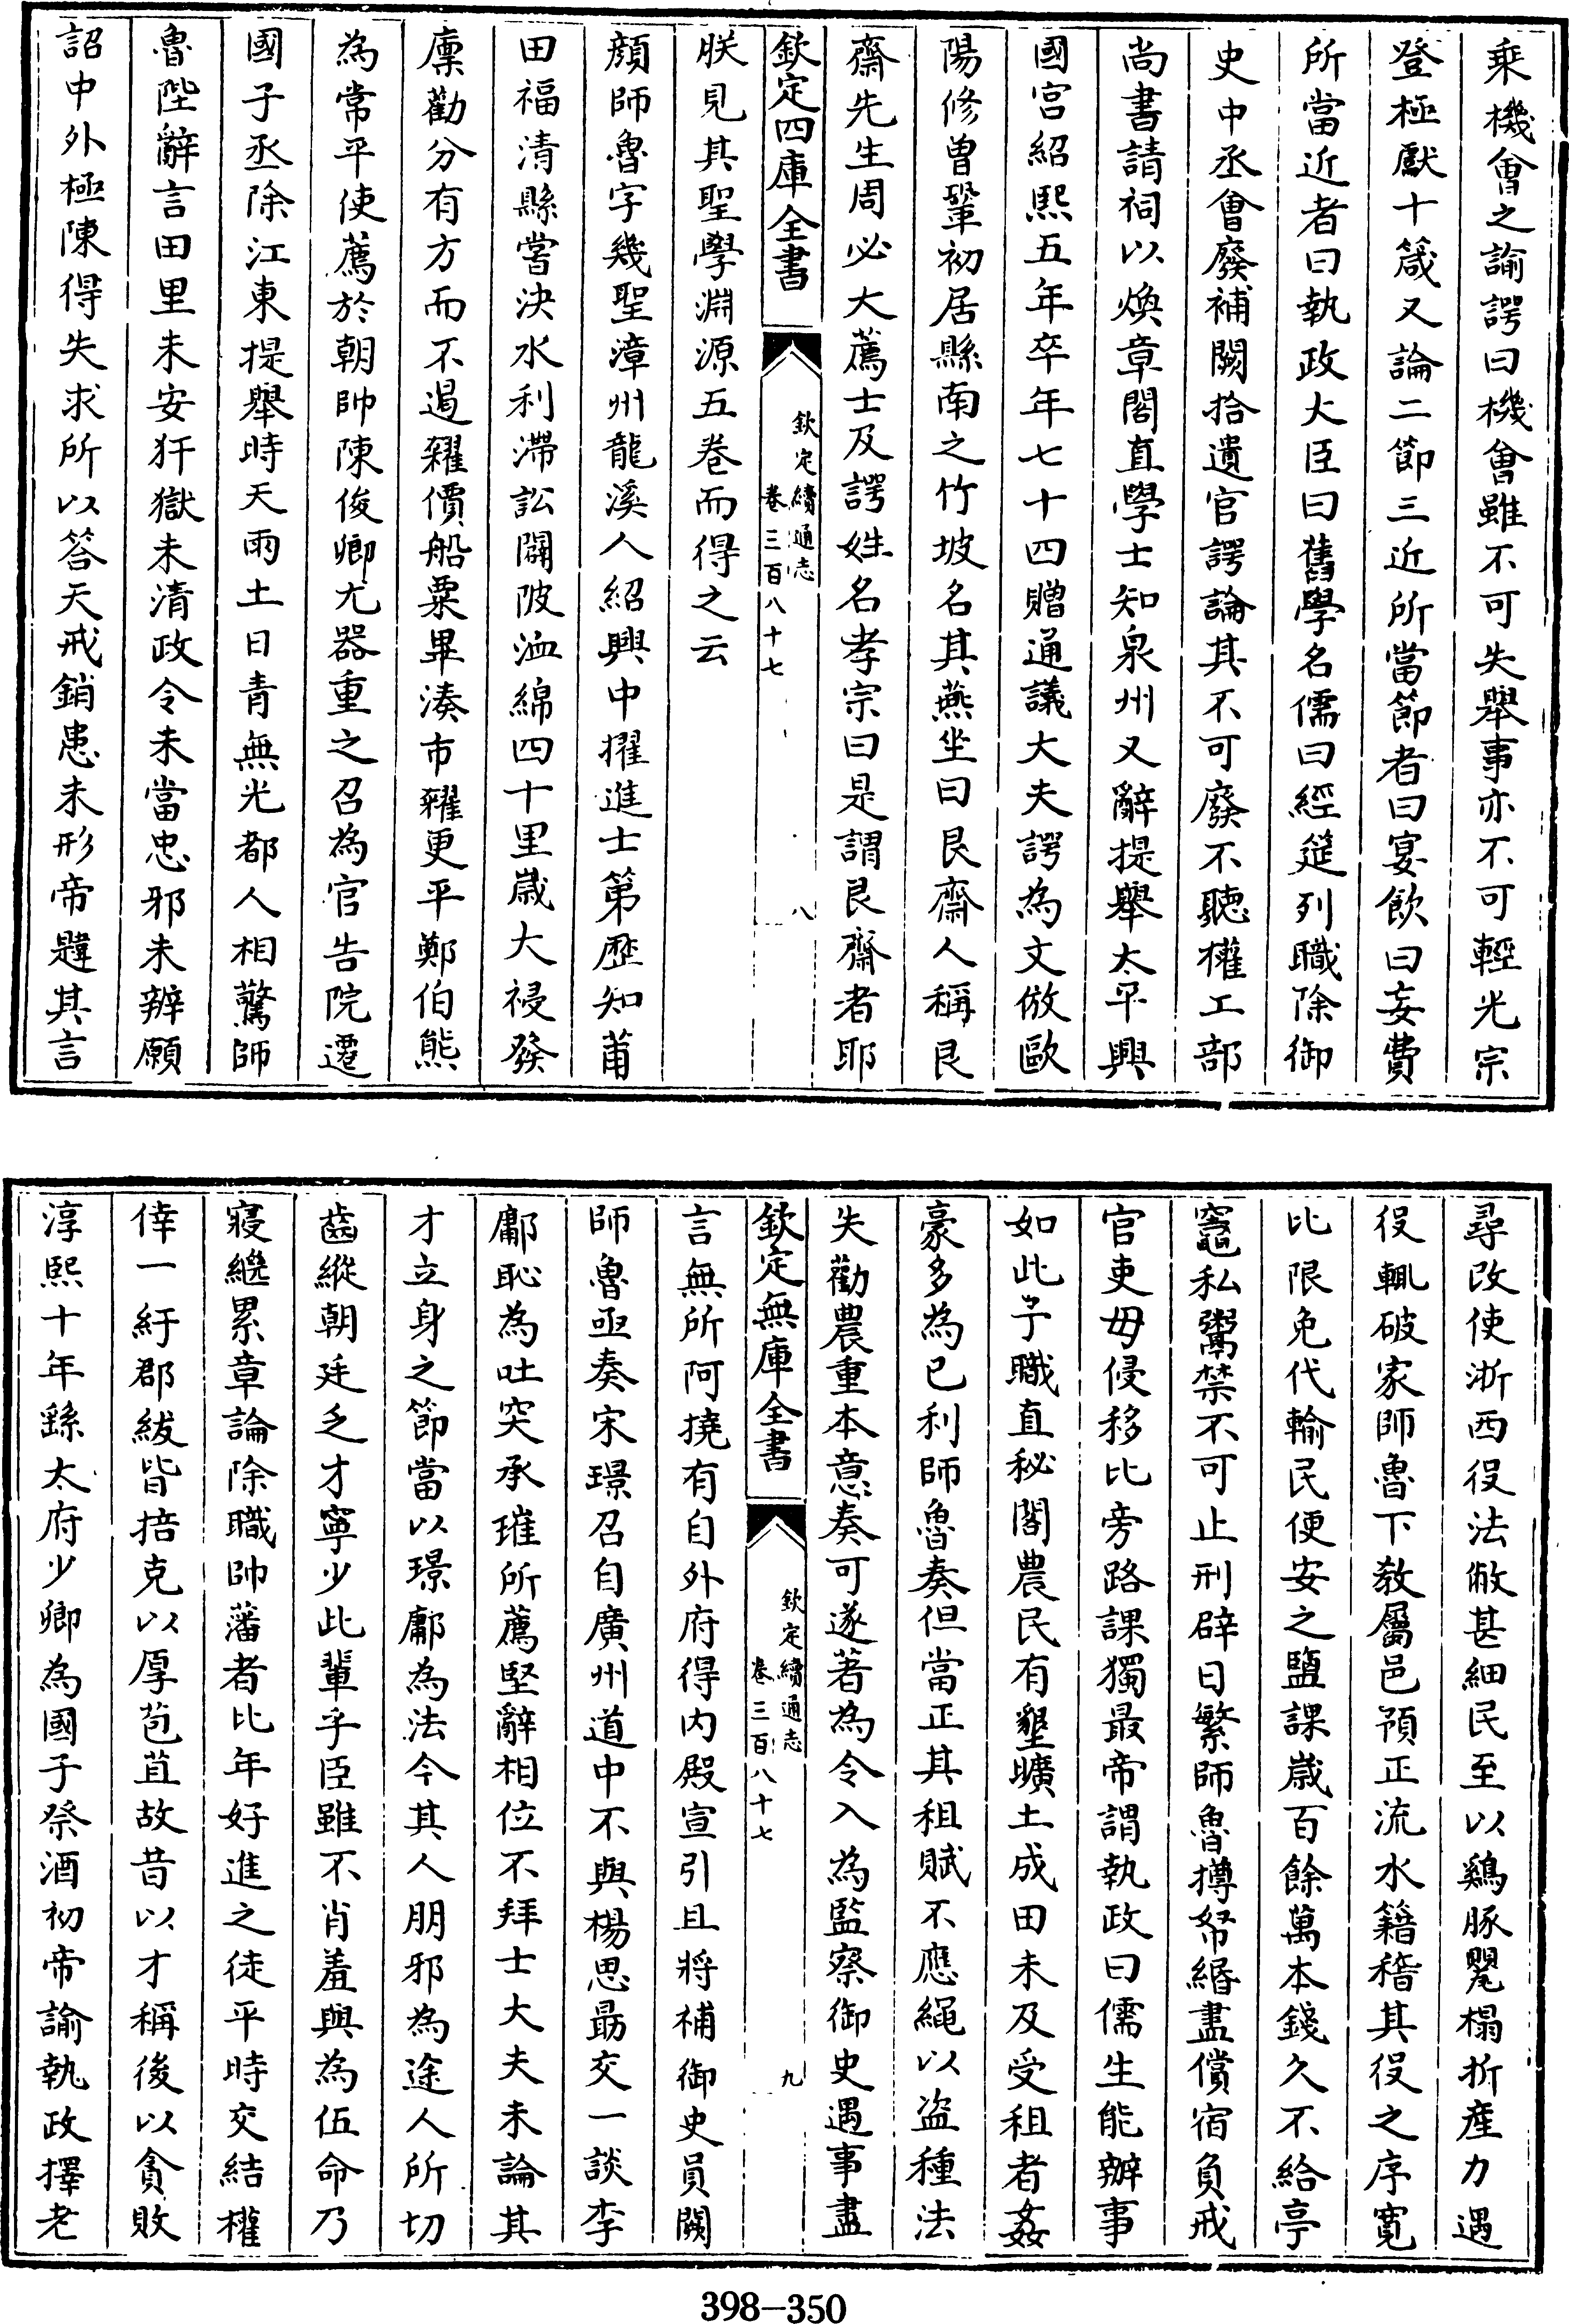 乘機會之諭諤曰機會雖不可失舉事亦不可輕光宗
登極獻十箴又論二節三近所當節者曰宴飲曰妄費
所當近者曰執政大臣曰舊學名儒曰經筵列職除御
史中丞會廢補闕拾遺官諤論其不可廢不聽權工部
尚書請祠以煥章閣直學士知泉州又辭提舉太平興
國宫紹熙五年卒年七十四贈通議大夫諤為文倣歐
陽修曾鞏初居縣南之竹坡名其燕坐曰艮齋人稱艮
齋先生周必大薦士及諤姓名孝宗曰是謂艮齋者耶
欽定四庫全書 欽定續通志 卷三百八十七 八
朕見其聖學淵源五卷而得之云
顔師魯字幾聖漳州龍溪人紹興中擢進士第歴知莆
田福清縣嘗決水利滯訟闢陂洫綿四十里歲大祲發
廩勸分有方而不遏糴價船粟畢湊市糴更平鄭伯熊
為常平使薦於朝帥陳俊卿尤器重之召為官告院遷
國子丞除江東提舉時天雨土日青無光都人相驚師
魯陛辭言田里未安犴獄未清政令未當忠邪未辨願
詔中外極陳得失求所以答天戒銷患未形帝韙其言
尋改使浙西役法敝甚細民至以鷄豚罌榻折産力遇
役輒破家師魯下教屬邑預正流水籍稽其役之序寛
比限免代輸民便安之鹽課歲百餘萬本錢久不給亭
竈私鬻禁不可止刑辟日繁師魯撙帑緡盡償宿負戒
官吏毋侵移比旁路課獨最帝謂執政曰儒生能辦事
如此予職直秘閣農民有墾曠土成田未及受租者姦
豪多為已利師魯奏但當正其租賦不應繩以盜種法
失勸農重本意奏可遂著為令入為監察御史遇事盡
欽定無庫全書 欽定續通志 卷三百八十七 九
言無所阿撓有自外府得内殿宣引且將補御史員闕
師魯亟奏宋璟召自廣州道中不與楊思勗交一談李
鄘恥為吐突承璀所薦堅辭相位不拜士大夫未論其
才立身之節當以璟鄘為法今其人朋邪為途人所切
齒縱朝廷乏才寧少此輩乎臣雖不肖羞與為伍命乃
寢繼累章論除職帥藩者比年好進之徒平時交結權
倖一紆郡紱皆掊克以厚苞苴故昔以才稱後以貪敗
淳熙十年繇太府少卿為國子祭酒初帝諭執政擇老
398-350